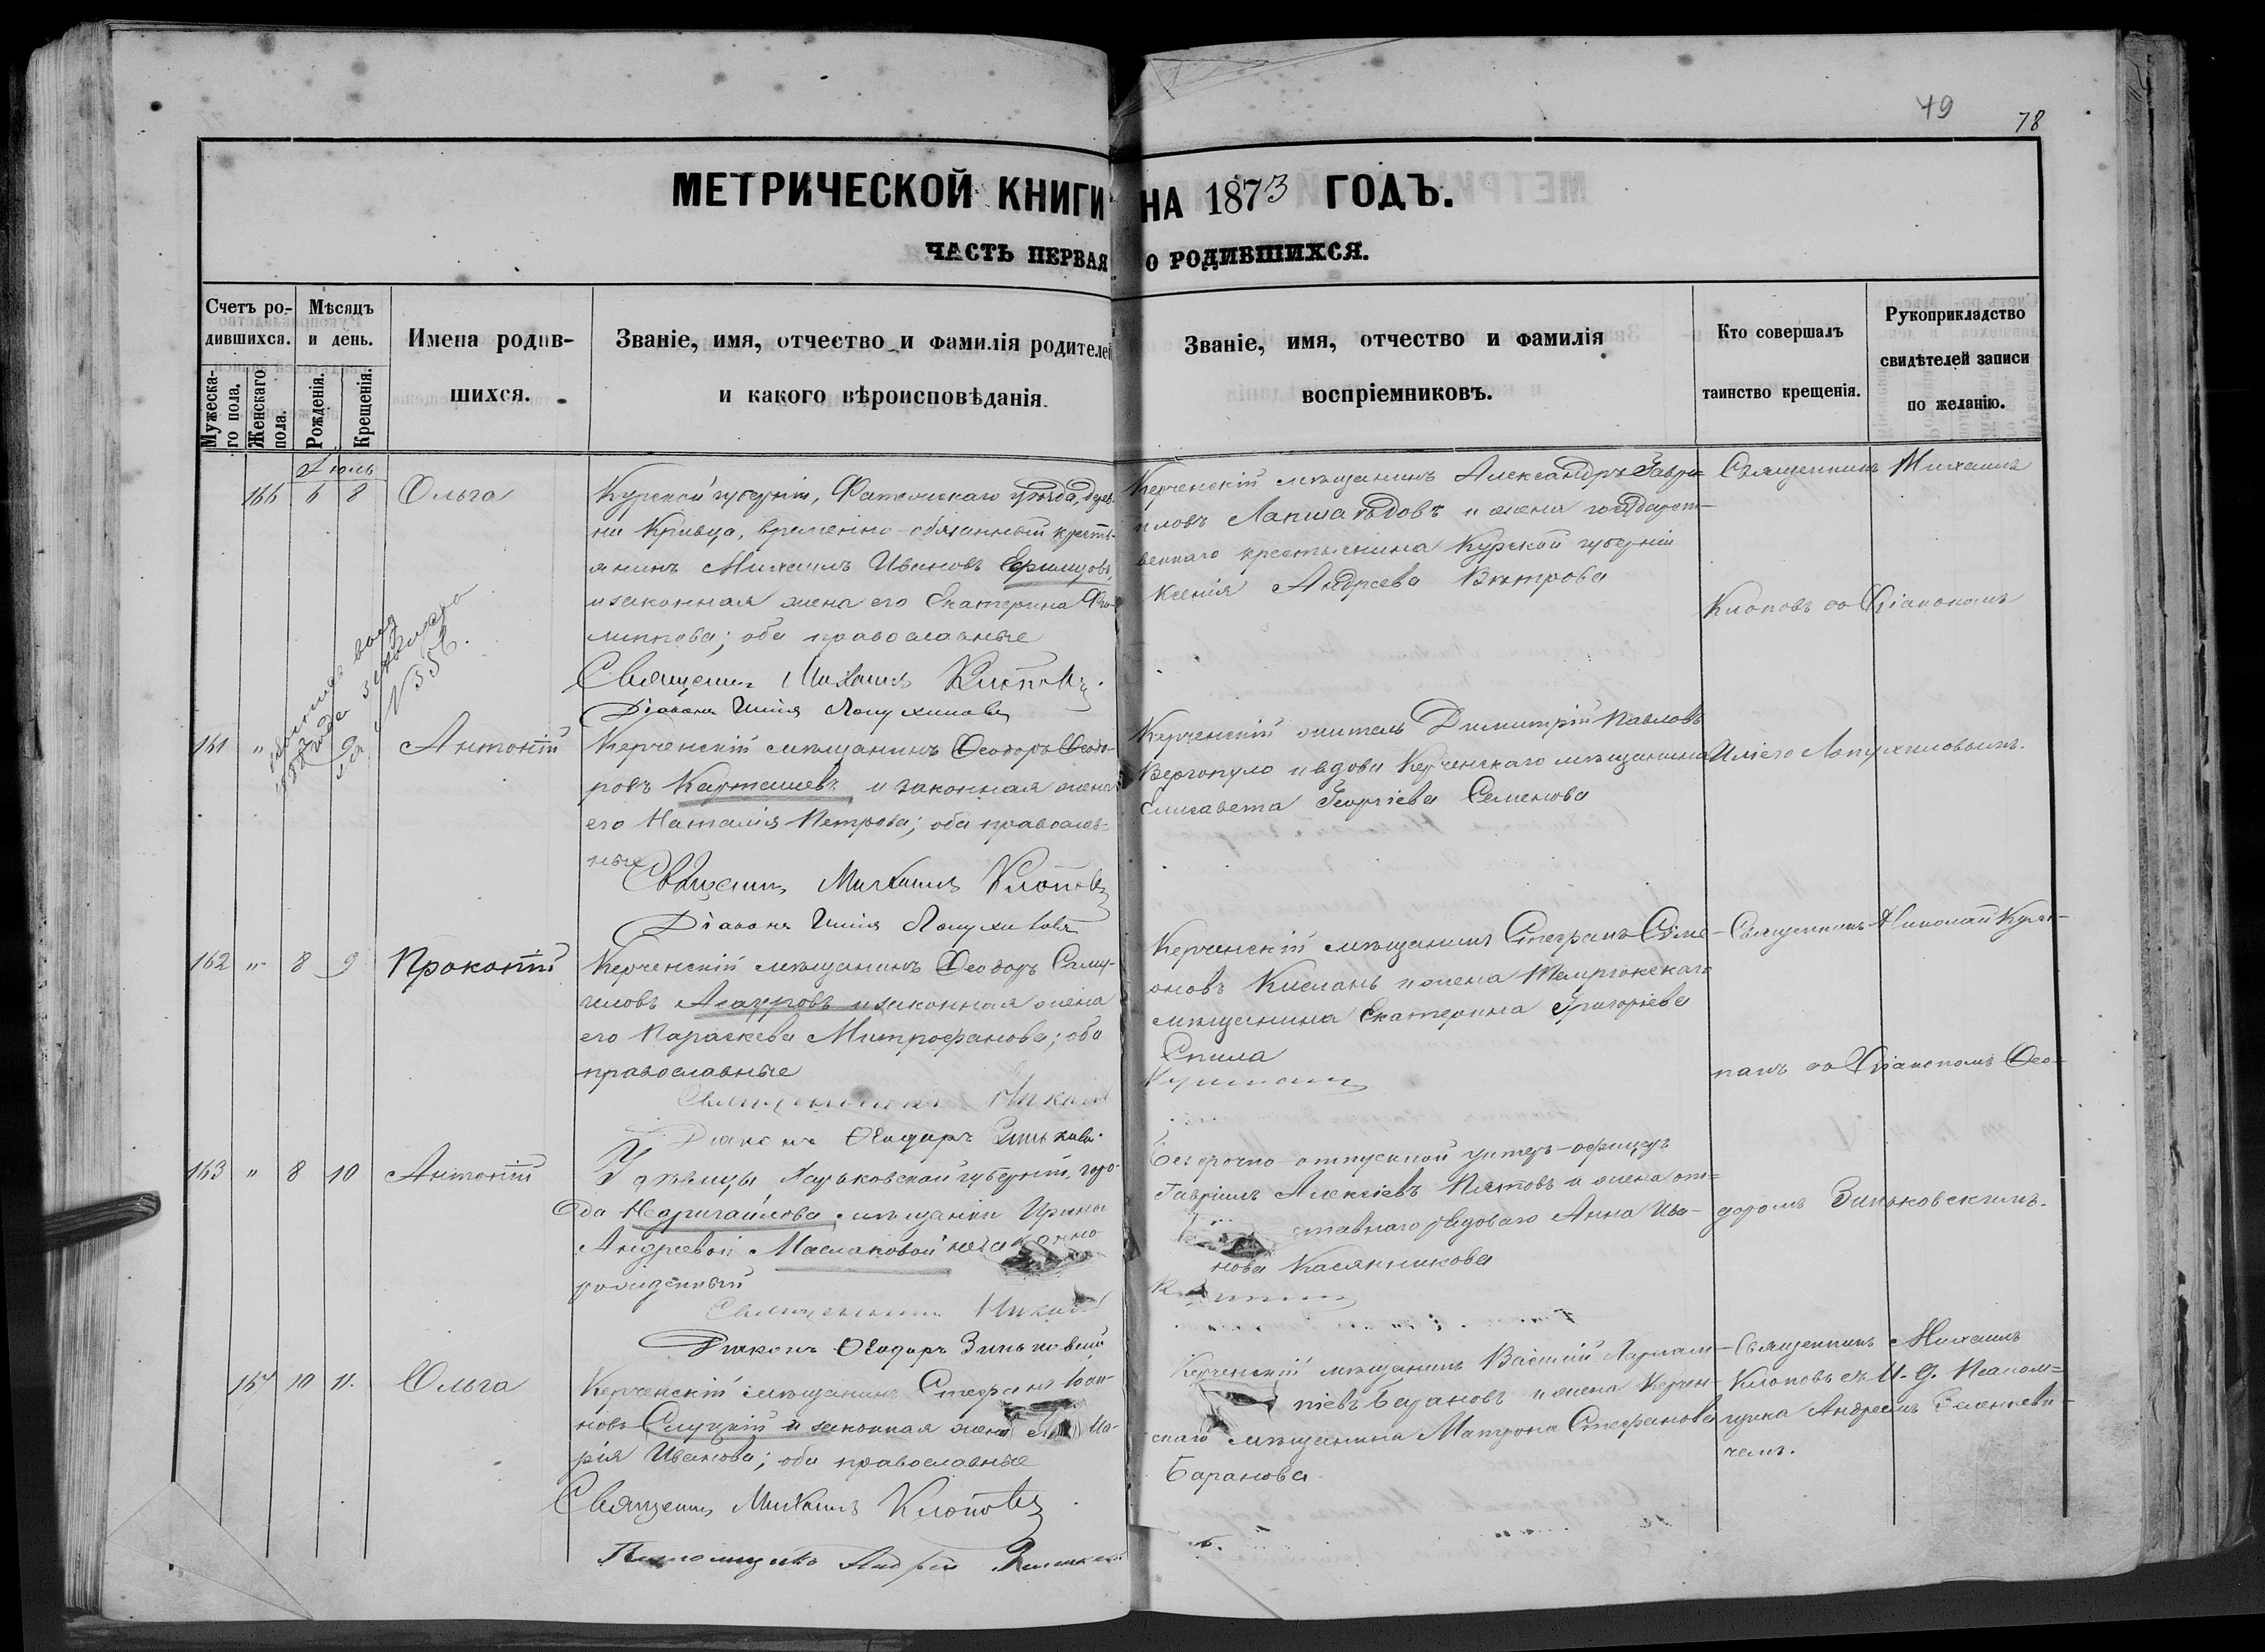 79
78
МЕТРИЧЕСКОЙ КНИГИ НА 1873 ГОДЪ.
ЧАСТЬ ПЕРВАЯ О РОДИВШИХСЯ.
Счетъ ро-
дившихся.
Мужеска-
го пола.
Женскаго
пола.
Мѣсяцъ
и день.
Рожденія.
Крещенія.
Имена родив-
шихся.
Званіе, имя, отчество и фамилія родителей
и какого вѣроисповѣданія.
Званіе, имя, отчество и фамилія
воспріемниковъ.
Кто совершалъ
таинство крещенія.
Рукоприкладство
свидѣтелей записи
по желанію.
Іюль
166 6 8 Ольга
Курской губерніи, Фатежскаго уѣзда, дерев-
ни Кривца, временно-обязанный кресть-
янинъ Михаилъ Ивановъ
и законная жена его Екатерина Фи-
липпова; оба православные
Священникъ Михаилъ Клоповъ
Діаконъ Илія Лопухиновъ
Керченскій мѣщанинъ Александръ Гаври-
иловъ и жена государст-
веннаго крестьянина Курской губерніи
Ксенія Андреева Вѣтрова
Священникъ Михаилъ
Клоповъ со Діакономъ
Иліею Лопухиновымъ.
161 " 9 Антоній
Керченскій мѣщанинъ Ѳеодоръ Ѳеодо-
ровъ Карташевъ и законная жена
его Наталія Петрова; оба православ-
ные
Священникъ Михаилъ Клоповъ
Діаконъ Илія Лопухиновъ
Керченскій житель Димитрій Павловъ
Вергопуло и вдова Керченскаго мѣщанина
Елисавета Георгіева Семенова
162 " 8 9 Прокопій
Керченскій мѣщанинъ Ѳеодоръ Саму-
иловъ и законная жена
его Параскева Митрофанова; оба
православные
Священникъ
Діаконъ Ѳеодоръ
Керченскій мѣщанинъ Стефанъ Симе-
оновъ и жена Темрюкскаго
мѣщанина Екатерина Григорьева
Священникъ Николай
со Діакономъ Ѳео-
доромъ Зиньковскимъ.
163 " 8 10 Антоній
У дѣвицы Харьковской губерніи, горо-
да Недригайлова мѣщанки Ирины
Андреевой Маслаковой незаконно
рожденный
Священникъ
Діаконъ Ѳеодоръ Зиньковскій
Безсрочно-отпускной унтеръ-офицеръ
Гавріилъ Алексіевъ Пятовъ и жена от-
ставнаго рядоваго Анна Ива-
нова Касянникова
167 10 11. Ольга
Керченскій мѣщанинъ Стефанъ Іоан-
новъ Слуцкій и законная жена его Ма-
рія Иванова; оба православные
Священникъ Михаилъ Клоповъ
Псаломщикъ Андрей
Керченскій мѣщанинъ Василій Харлам-
піевъ Барановъ и жена Керчен-
скаго мѣщанина Матрона Стефанова
Баранова
Священникъ Михаилъ
Клоповъ съ И. Д. Псалом-
щика Андреемъ
чемъ.